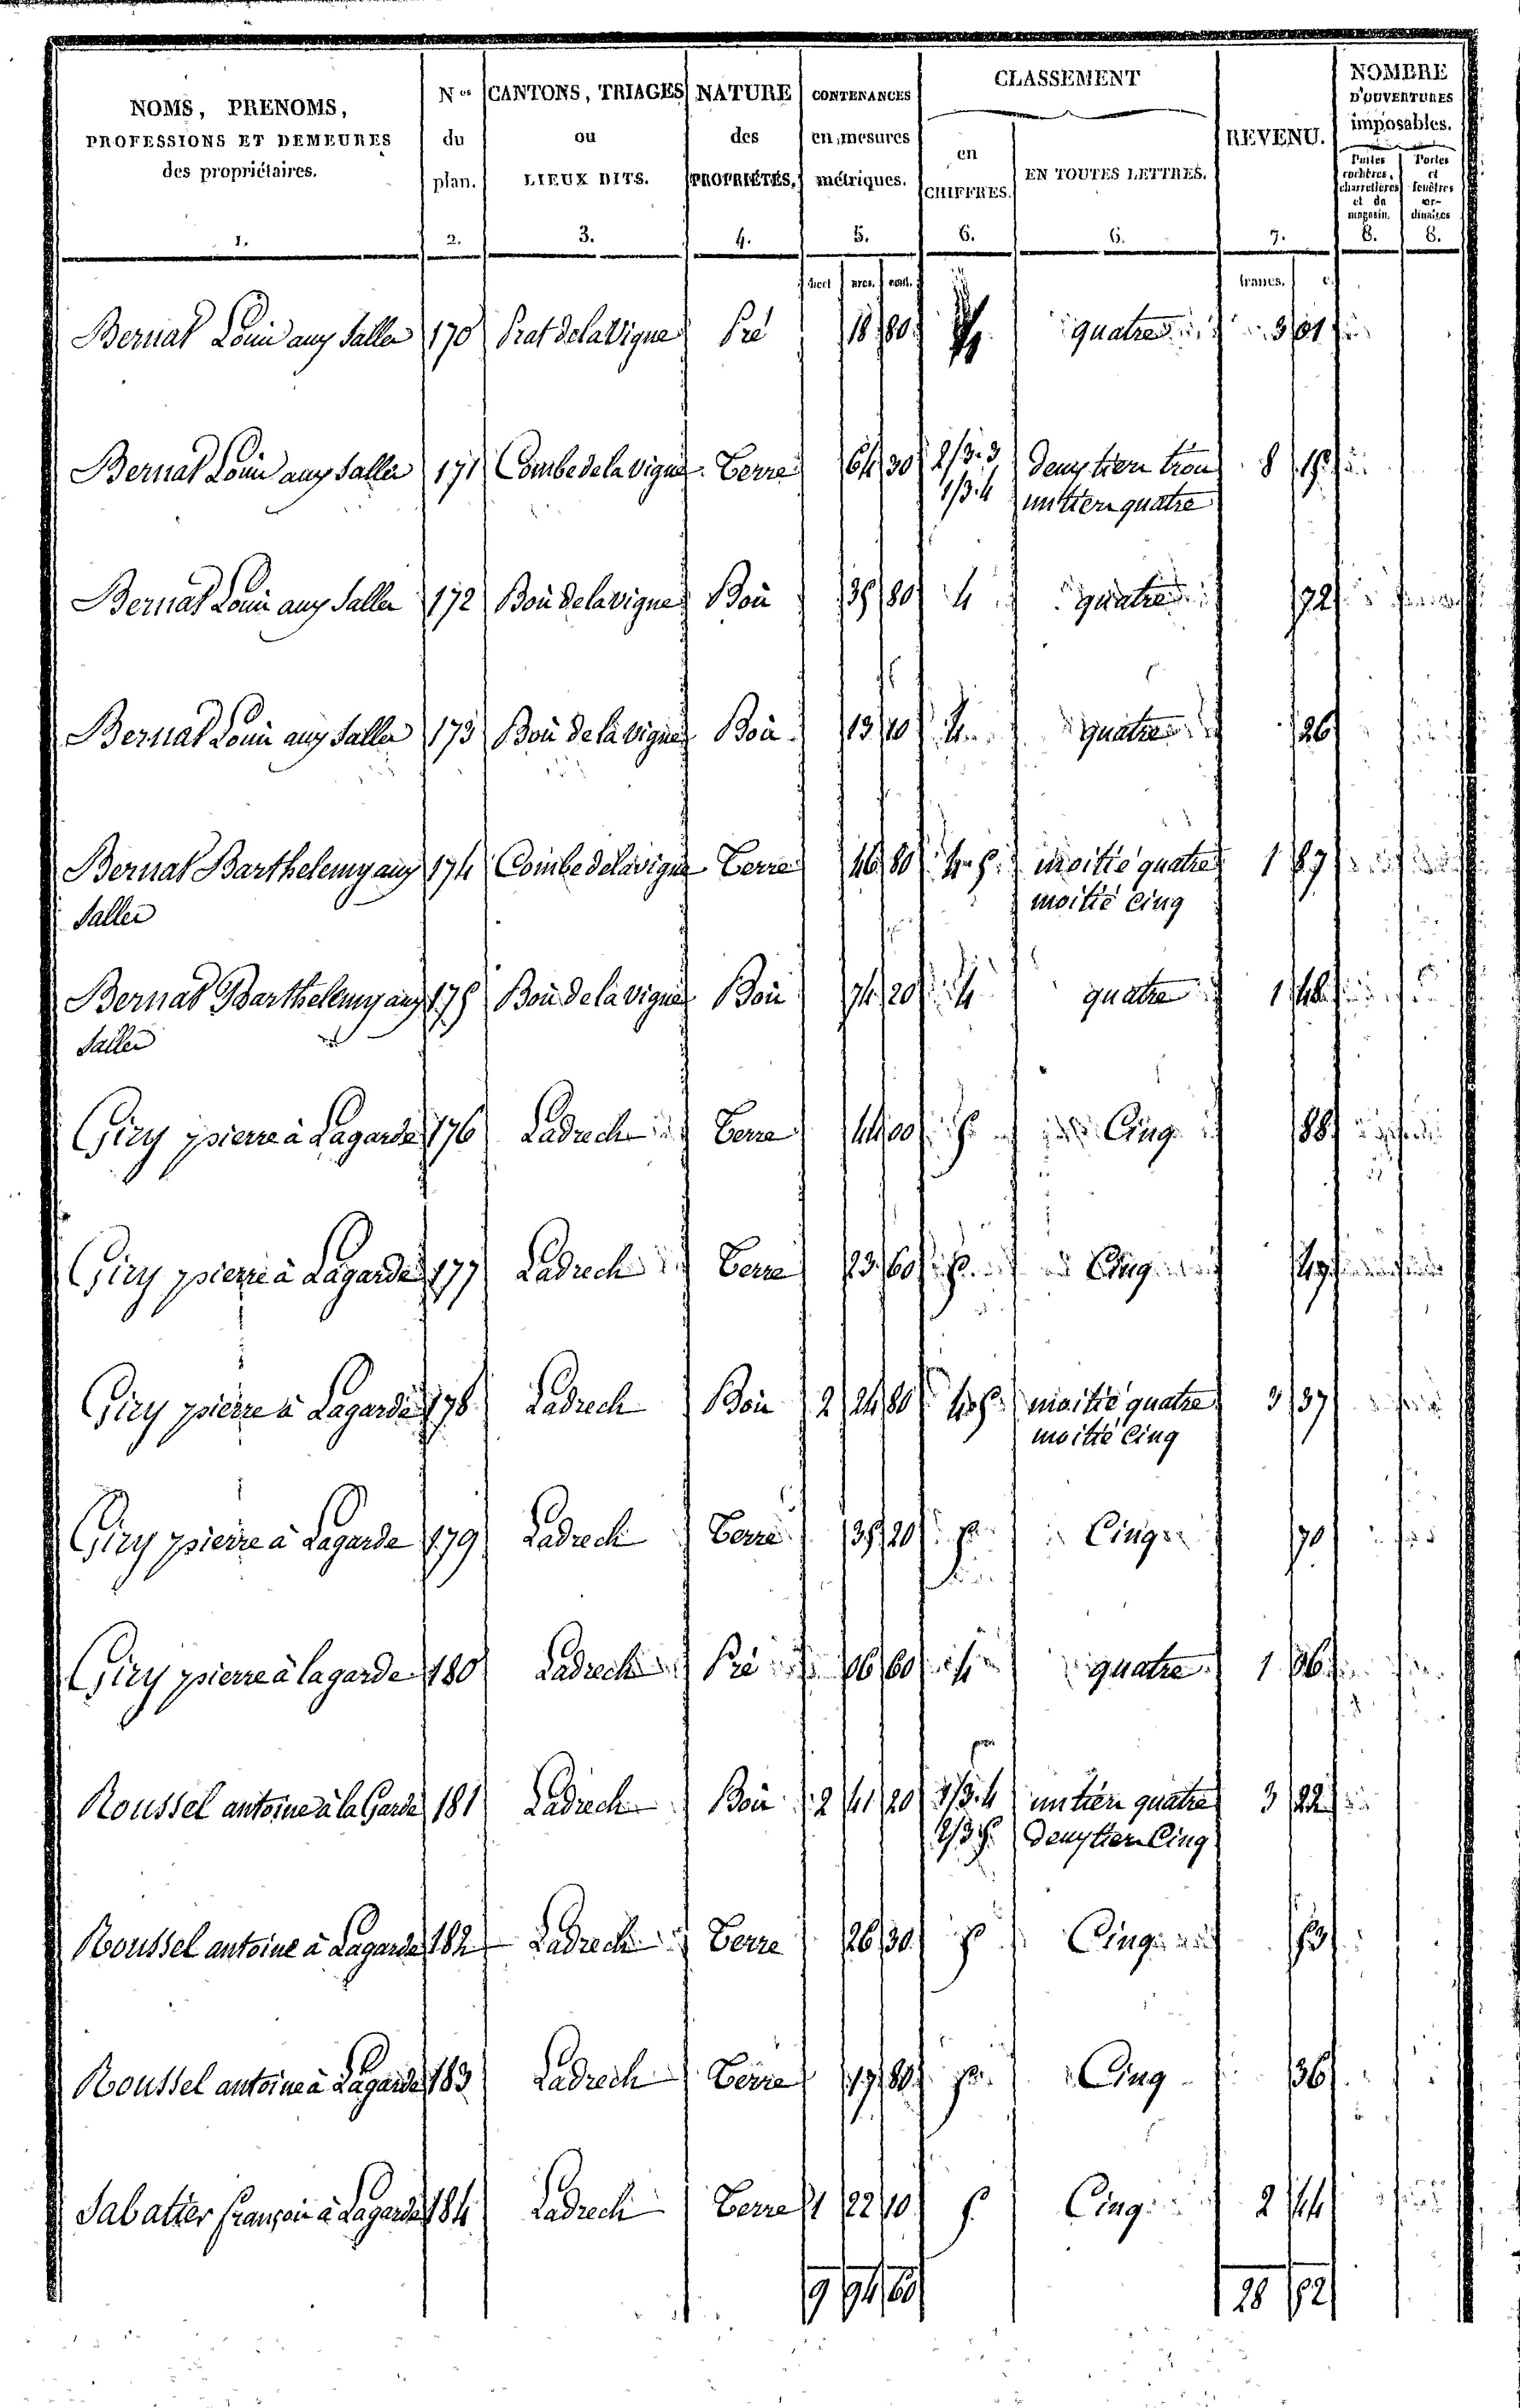 NOMS, PRENOMS,
PROFESSIONS ET DEMEURES
des propriétaires.
1.
Nos
du
plan.
2.
CANTONS, TRIAGES
ou
LIEUX DITS.
3.
NATURE
des
PROPRIÉTÉS.
4.
CONTENANCES
en mesures
métriques.
5.
CLASSEMENT
en
CHIFFRES.
6.
EN TOUTES LETTRES.
6.
REVENU.
7.
NOMBRE
D'OUVERTURES
imposables.
Portes
cochères,
charretières
et de
magasin.
8.
Portes
et
fenêtres
or-
dinaires
8.
hect. ares. cent. francs. c.
Bernat Louis aux Salles 170 Prat de la Vigne Pré 18 80 4 quatre 3 01
Bernat Louis aux Salles 171 Combe de la vigne Terre 64 30 2/3.3 deux tiers trois 8 15
1/3.4 un tiers quatre
Bernat Louis aux Salles 172 Bois de la vigne Bois 35 80 4 quatre 72
Bernat Louis aux Salles 173 Bois de la vigne Bois 13 10 4 quatre 26
Bernat Barthelemy aux 174 Combe de la vigne Terre 46 80 4 5 moitié quatre 1 87
Salles moitié Cinq
Bernat Barthelemy aux 175 Bois de la vigne Bois 74 20 4 quatre 1 48
Salles
Giry pierre à Lagarde 176 Ladrech Terre 44 00 5 Cinq 88
Giry pierre à Lagarde 177 Ladrech Terre 23 60 5 Cinq 47
Giry pierre à Lagarde 178 Ladrech Bois 2 24 80 4 5 moitié quatre 3 37
moitié Cinq
Giry pierre à Lagarde 179 Ladrech Terre 35 20 5 Cinq 70
Giry pierre à lagarde 180 Ladrech Pré 06 60 4 quatre 1 06
Roussel antoine à la Garde 181 Ladrech Bois 2 41 20 1/3.4 un tiers quatre 3 22
2/3 5 deux tiers Cinq
Roussel antoine à Lagarde 182 Ladrech Terre 26 30 5 Cinq 53
Roussel antoine à Lagarde 183 Ladrech Terre 17 80 5 Cinq 36
Sabatier françois à Lagarde 184 Ladrech Terre 1 22 10 5 Cinq 2 44
9 94 60 28 52